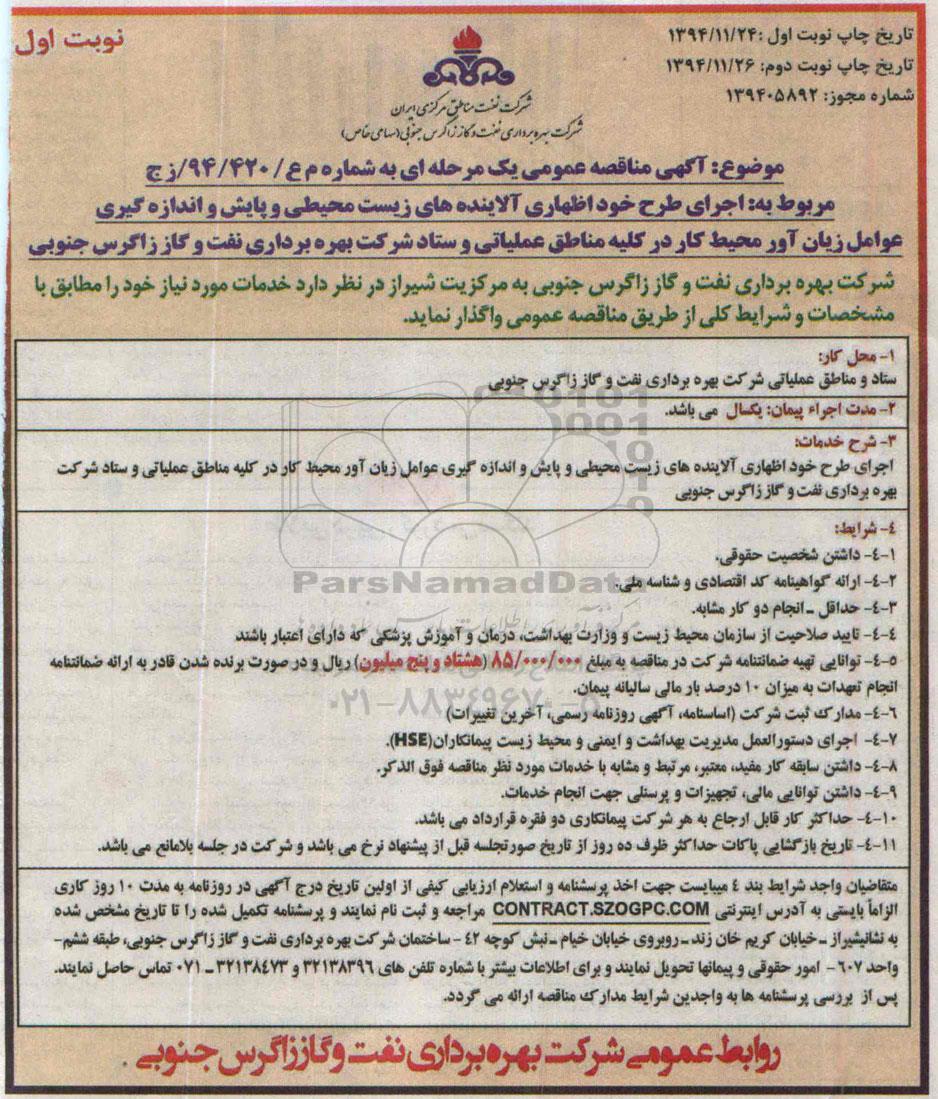 نوبت اول
تاریخ چاپ نوبت اول :۱۳۹۴/۱۱/۲۴
تاریخ چاپ نوبت دوم: ۱۳۹۴/۱۱/۲۶
شماره مجوز: ۱۳۹۴۰۵۸۹۲
شرکت نفت مناطق مرکزی ایران
شرکت بهره برداری نفت و گاز زاگرس جنوبی(سهامی خاص)
موضوع: آگهی مناقصه عمومی یک مرحله ای به شماره م ع/ ۹۴/۴۲۰/ز ج
مربوط به: اجرای طرح خود اظهاری آلاینده های زیست محیطی و پایش و اندازه گیری
عوامل زیان آور محیط کار در کلیه مناطق عملیاتی و ستاد شرکت بهره برداری نفت و گاز زاگرس جنوبی
شرکت بهره برداری نفت و گاز زاگرس جنوبی به مرکزیت شیراز در نظر دارد خدمات مورد نیاز خود را مطابق با
مشخصات و شرایط کلی از طریق مناقصه عمومی واگذار نماید.
۱- محل کار:
ستاد و مناطق عملیاتی شرکت بهره برداری نفت و گاز زاگرس جنوبی
۲- مدت اجراء پیمان: یکسال می باشد.
۳- شرح خدمات:
اجرای طرح خود اظهاری آلاینده های زیست محیطی و پایش و اندازه گیری عوامل زیان آور محیط کار در کلیه مناطق عملیاتی و ستاد شرکت
بهره برداری نفت و گاز زاگرس جنوبی
۴- شرایط:
۴-۱- داشتن شخصیت حقوقی.
۴-۲- ارائه گواهینامه کد اقتصادی و شناسه ملی.
۴-۳- حداقل ـ انجام دو کار مشابه.
۴-۴- تایید صلاحیت از سازمان محیط زیست و وزارت بهداشت، درمان و آموزش پزشکی که دارای اعتبار باشند
۴-۵- توانایی تهیه ضمانتنامه شرکت در مناقصه به مبلغ ۸۵/۰۰۰/۰۰۰ (هشتاد و پنج میلیون) ریال و در صورت برنده شدن قادر به ارائه ضمانتنامه
انجام تعهدات به میزان ۱۰ درصد بار مالی سالیانه پیمان.
۴-۶- مدارک ثبت شرکت (اساسنامه، آگهی روزنامه رسمی، آخرین تغییرات)
۴-۷- اجرای دستورالعمل مدیریت بهداشت و ایمنی و محیط زیست پیمانکاران(HSE).
۴-۸- داشتن سابقه کار مفید، معتبر، مرتبط و مشابه با خدمات مورد نظر مناقصه فوق الذکر.
۴-۹- داشتن توانایی مالی، تجهیزات و پرسنلی جهت انجام خدمات.
۴-۱۰- حداکثر کار قابل ارجاع به هر شرکت پیمانکاری دو فقره قرارداد می باشد.
۴-۱۱- تاریخ بازگشایی پاکات حداکثر ظرف ده روز از تاریخ صورتجلسه قبل از پیشنهاد نرخ می باشد و شرکت در جلسه بلامانع می باشد.
متقاضیان واجد شرایط بند ۴ میبایست جهت اخذ پرسشنامه و استعلام ارزیابی کیفی از اولین تاریخ درج آگهی در روزنامه به مدت ۱۰ روز کاری
الزاماً بایستی به آدرس اینترنتی CONTRACT.SZOGPC.COM مراجعه و ثبت نام نمایند و پرسشنامه تکمیل شده را تا تاریخ مشخص شده
به نشانیشیراز ـ خیابان کریم خان زند ـ روبروی خیابان خیام ـ نبش کوچه ۴۲ - ساختمان شرکت بهره برداری نفت و گاز زاگرس جنوبی، طبقه ششم-
واحد ۶۰۷- امور حقوقی و پیمانها تحویل نمایند و برای اطلاعات بیشتر با شماره تلفن های ۳۲۱۳۸۳۹۶ و ۳۲۱۳۸۴۷۳ ـ ۰۷۱ تماس حاصل نمایند.
پس از بررسی پرسشنامه ها به واجدین شرایط مدارک مناقصه ارائه می گردد.
روابط عمومی شرکت بهره برداری نفت و گاز زاگرس جنوبی
ParsNamadData
۰۲۱-۸۸۳۴۹۶۷۰-۵